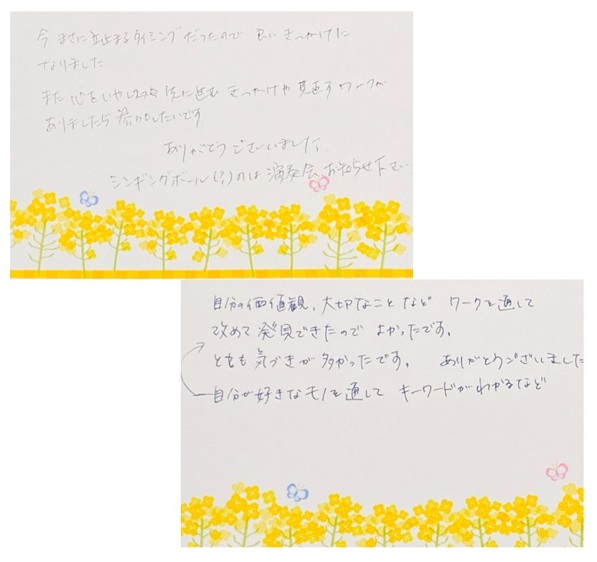 今まさに立止まるタイミングだったので 良いきっかけに
なりました
また 心をいやし 先に進む きっかけや 見直すワークが
ありましたら 参加したいです
ありがとうございました
シンギングボール(?)のは 演奏会 お知らせ下さい
自分の価値観、大切なことなど ワークを通して
改めて発見できたので よかったです。
とても気づきが多かったです。 ありがとうございました
自分が好きなモノを通して キーワードがわかるなど